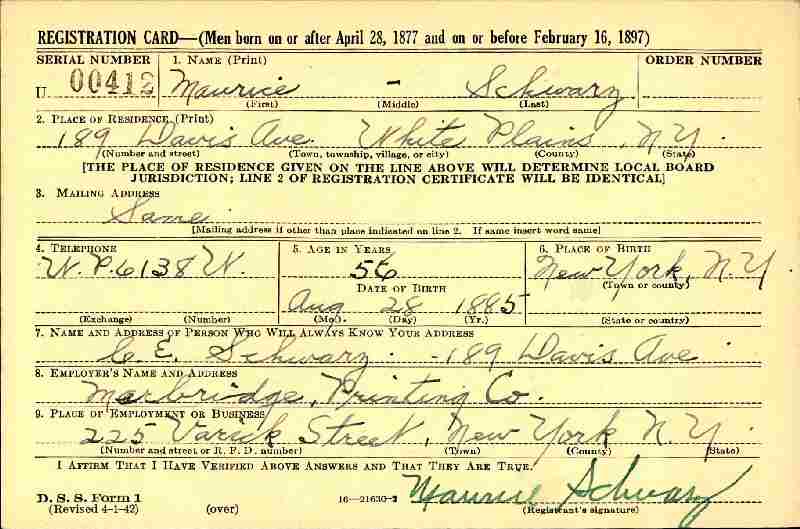 REGISTRATION CARD—(Men born on or after April 28, 1877 and on or before February 16, 1897)
SERIAL NUMBER 1. NAME (Print) ORDER NUMBER
U 00412 Maurice - Schwarz
(First) (Middle) (Last)
2. PLACE OF RESIDENCE (Print)
189 Davis Ave. White Plains, N.Y.
(Number and street) (Town, township, village, or city) (County) (State)
[THE PLACE OF RESIDENCE GIVEN ON THE LINE ABOVE WILL DETERMINE LOCAL BOARD
JURISDICTION; LINE 2 OF REGISTRATION CERTIFICATE WILL BE IDENTICAL]
3. MAILING ADDRESS
Same
[Mailing address if other than place indicated on line 2. If same insert word same]
4. TELEPHONE 5. AGE IN YEARS 6. PLACE OF BIRTH
W.P. 6138 W. 56 New York, N.Y.
DATE OF BIRTH (Town or county)
Aug 28 1885
(Exchange) (Number) (Mo.) (Day) (Yr.) (State or country)
7. NAME AND ADDRESS OF PERSON WHO WILL ALWAYS KNOW YOUR ADDRESS
C. E. Schwarz - 189 Davis Ave.
8. EMPLOYER'S NAME AND ADDRESS
Marbridge Printing Co.
9. PLACE OF EMPLOYMENT OR BUSINESS
225 Varick Street, New York N.Y.
(Number and street or R. F. D. number) (Town) (County) (State)
I AFFIRM THAT I HAVE VERIFIED ABOVE ANSWERS AND THAT THEY ARE TRUE.
D. S. S. Form 1 16—21630-2 Maurice Schwarz
(Revised 4-1-42) (over) (Registrant's signature)